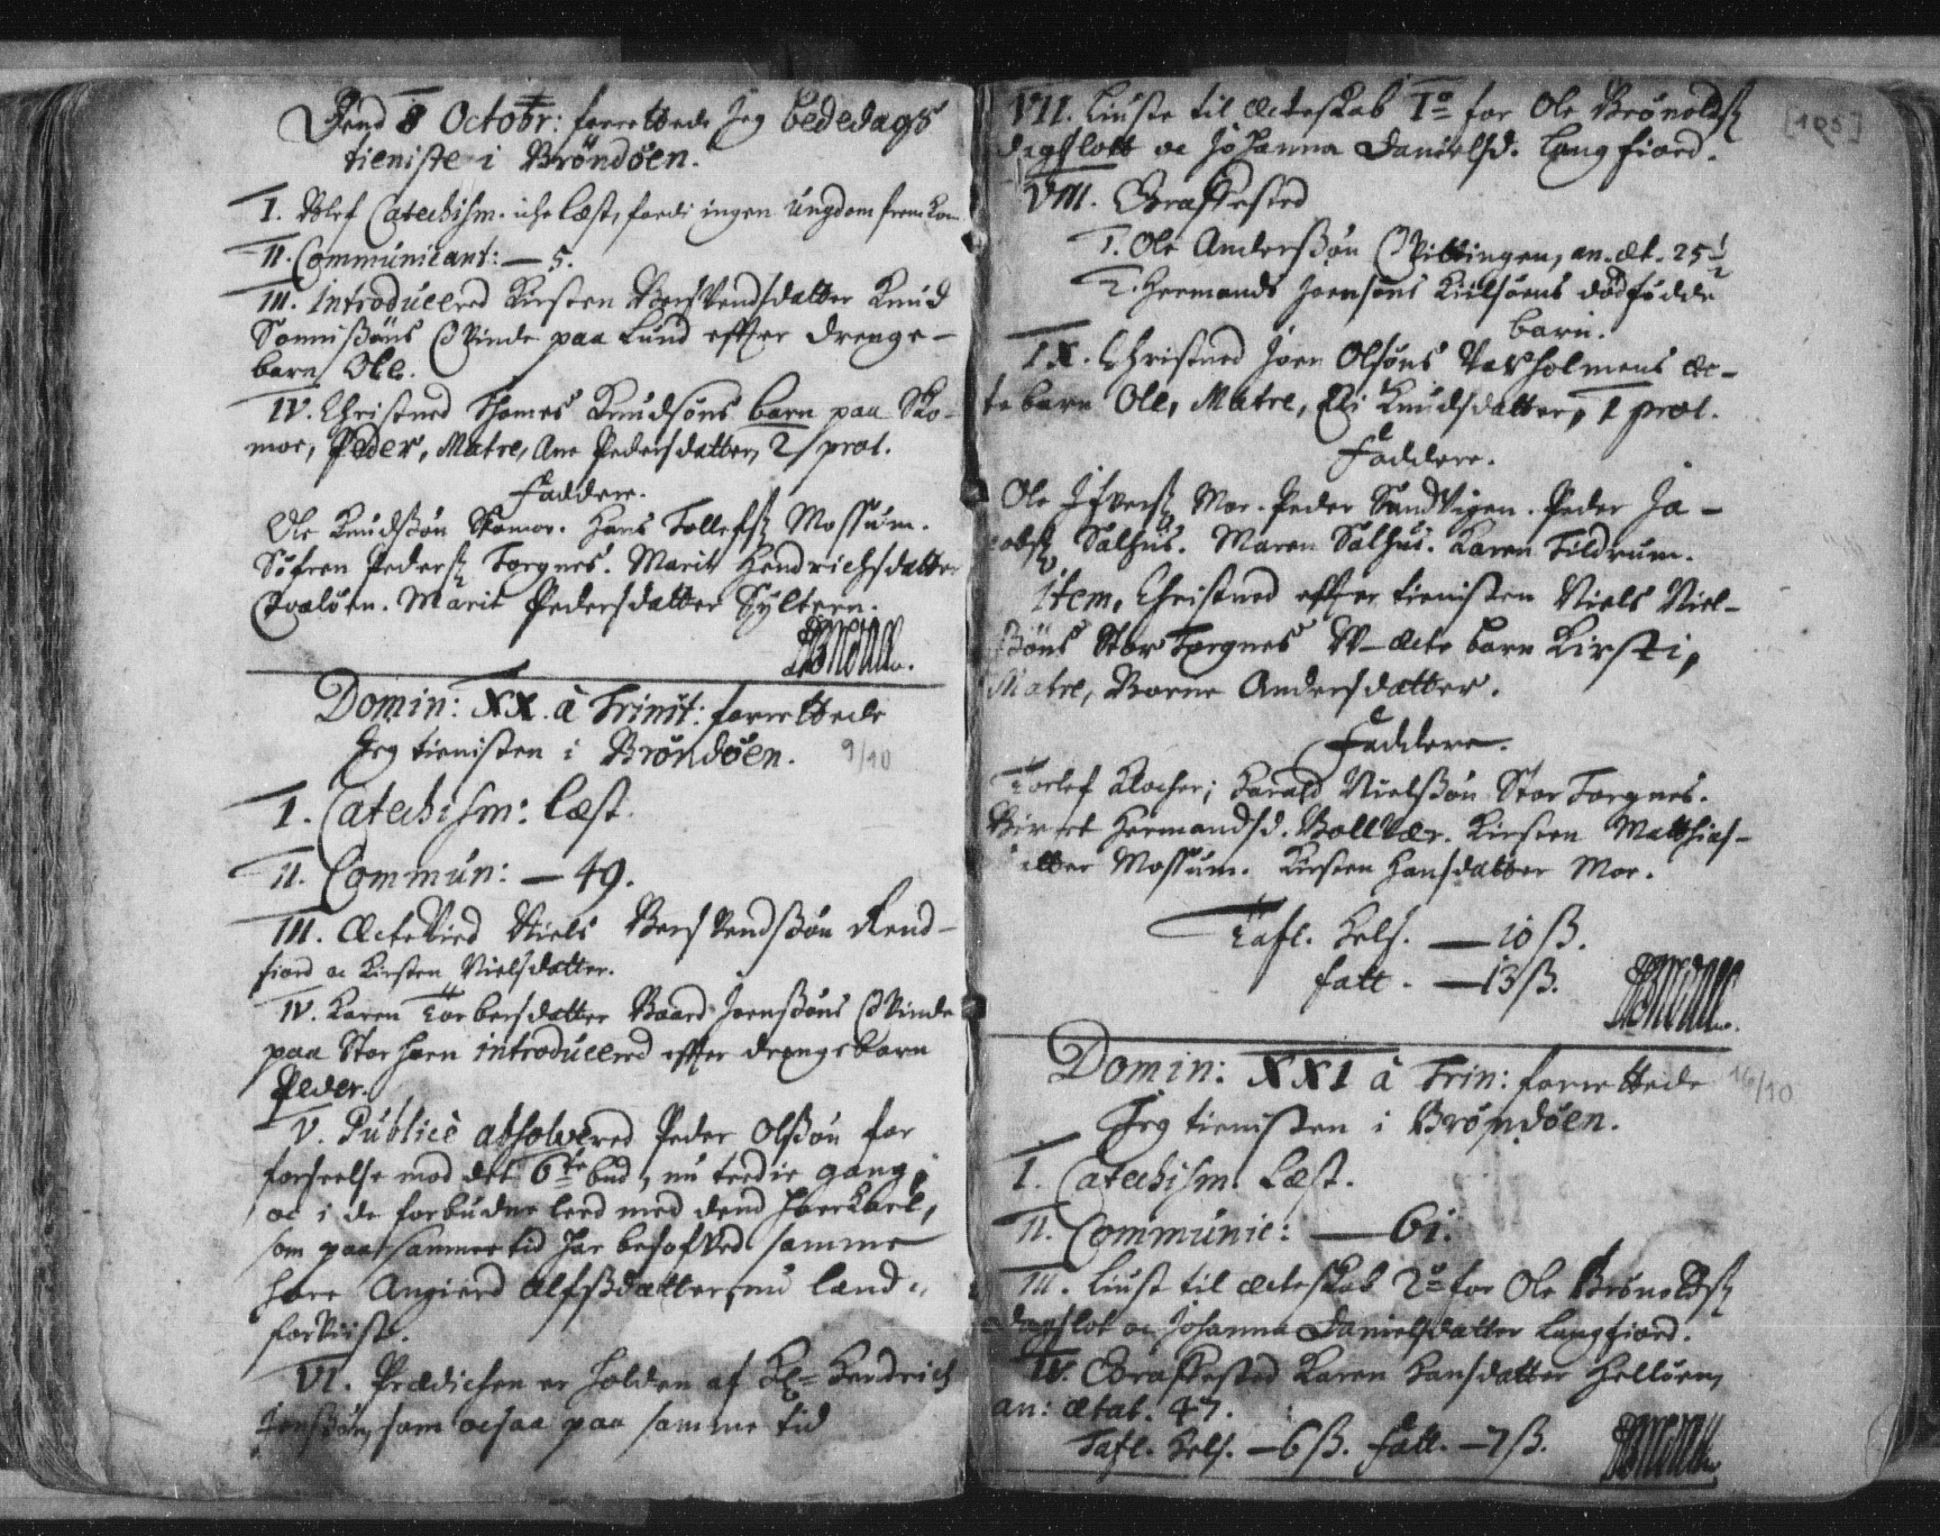 Dend 8 Octobr: forrettede Jeg bededags
tieniste i Bröndöen.
I. Blef Catechism. iche læst, fordi ingen Ungdom frem kom
II. Communicant: — 5.
III. Introducered Kirsten BersVendsdatter Knud
Sonnisöns QVinde paa Lund effter drenge-
barn Ole.
IV. Christned Thomes Knudsöns barn paa Sko-
moe, Peder, Matre, Ane Pedersdatter, 2 prol.
Faddere.
Ole Knudsön Skomoe. Hans Tollefs. Mossum.
Söfren Peders. Torgnes. Marit Hendrichsdatter
Qvalöen. Marit Pedersdatter Sÿltern.
Domin: XX. à Trinit: forrettede
Jeg tienisten i Bröndöen. 9/10
I. Catechism: læst.
II. Commun: — 49.
III. ÆcteVied Niels BersVendsön
fiord oc Kirsten Nielsdatter.
IV. Karen Torbersdatter Baard Joensöns QVinde
paa Storhorn introducered effter drengebarn
Peder.
V. Publicè absolvered Peder Olsön for
forseelse mod det 6te bud, nu tredie gang,
oc i de forbudne leed med dend
som paa samme tid har besofVed samme
hore Angierd Alfsdatter, nu land-
forViist.
VI. Prædichen er holden af Hr. Hendrich
Jensön, som ocsaa paa samme tid
VII. Liuste til æcteskab 1o for Ole Brönolds.
oc Johanna Danielsd. Langfiord. [105]
VIII. Graffested
1. Ole Andersön QVittingen, an. æt. 25 1/2
2. Hermands Joensöns Kiilsöens dödfödde
barn.
IX. Christned Joen Olsöns Torholmens æc-
te barn Ole, Matre, Eli Knudsdatter, 1 prol.
Faddere.
Ole Ifvers. Moe. Peder SandVigen. Peder Ja-
cobs. Salhus. Maren Salhus. Karen Tildrum.
Item, Christned effter tienisten Niels Niel-
söns Stor Torgnes W-æcte barn Kirsti,
Matre, Borne Andersdatter.
Faddere.
Torlef Klocher; Harald Nielsön Stor Torgnes.
Birret Hermandsd. BollVær. Kirsten Matthias-
datter Mossum. Kirsten Hansdatter Moe.
Tafl. Hels. — 10 ß.
fatt. — 13 ß.
Domin: XXI à Trin: forrettede 16/10
Jeg tienisten i Bröndöen.
I. Catechism. Læst.
II. Communic: — 61.
III. Liust til æcteskab 2o for Ole Brönolds.
oc Johanna Danielsdatter Langfiord.
IV. Graffested Karen Hansdatter Hellöen,
an: ætat. 47.
Tafl. Hels. — 6 ß. fatt. — 7 ß.